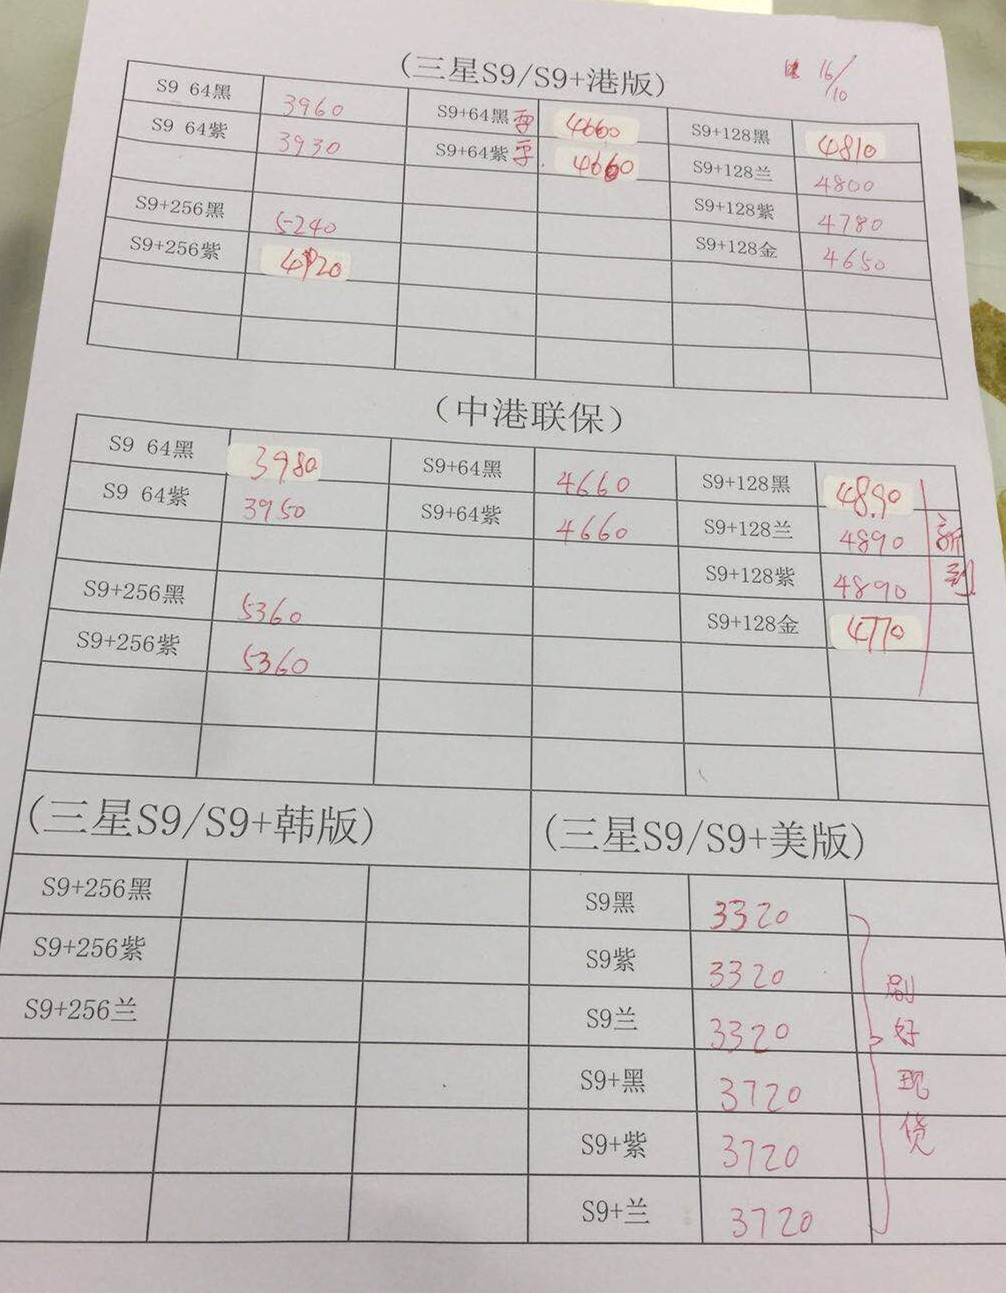 (三星S9/S9+港版)
16/10
S9 64黑 3960 S9+64黑 4660 S9+128黑 4810
S9 64紫 3930 S9+64紫 4660 S9+128兰 4800
S9+128紫 4780
S9+256黑 5240 S9+128金 4650
S9+256紫 4920
(中港联保)
S9 64黑 3980 S9+64黑 4660 S9+128黑 4890
S9 64紫 3950 S9+64紫 4660 S9+128兰 4890
S9+128紫 4890
新到
S9+256黑 5360 S9+128金 4770
S9+256紫 5360
(三星S9/S9+韩版) (三星S9/S9+美版)
S9+256黑 S9黑 3320
S9+256紫 S9紫 3320
S9+256兰 S9兰 3320
S9+黑 3720
S9+紫 3720
S9+兰 3720
刷好现货